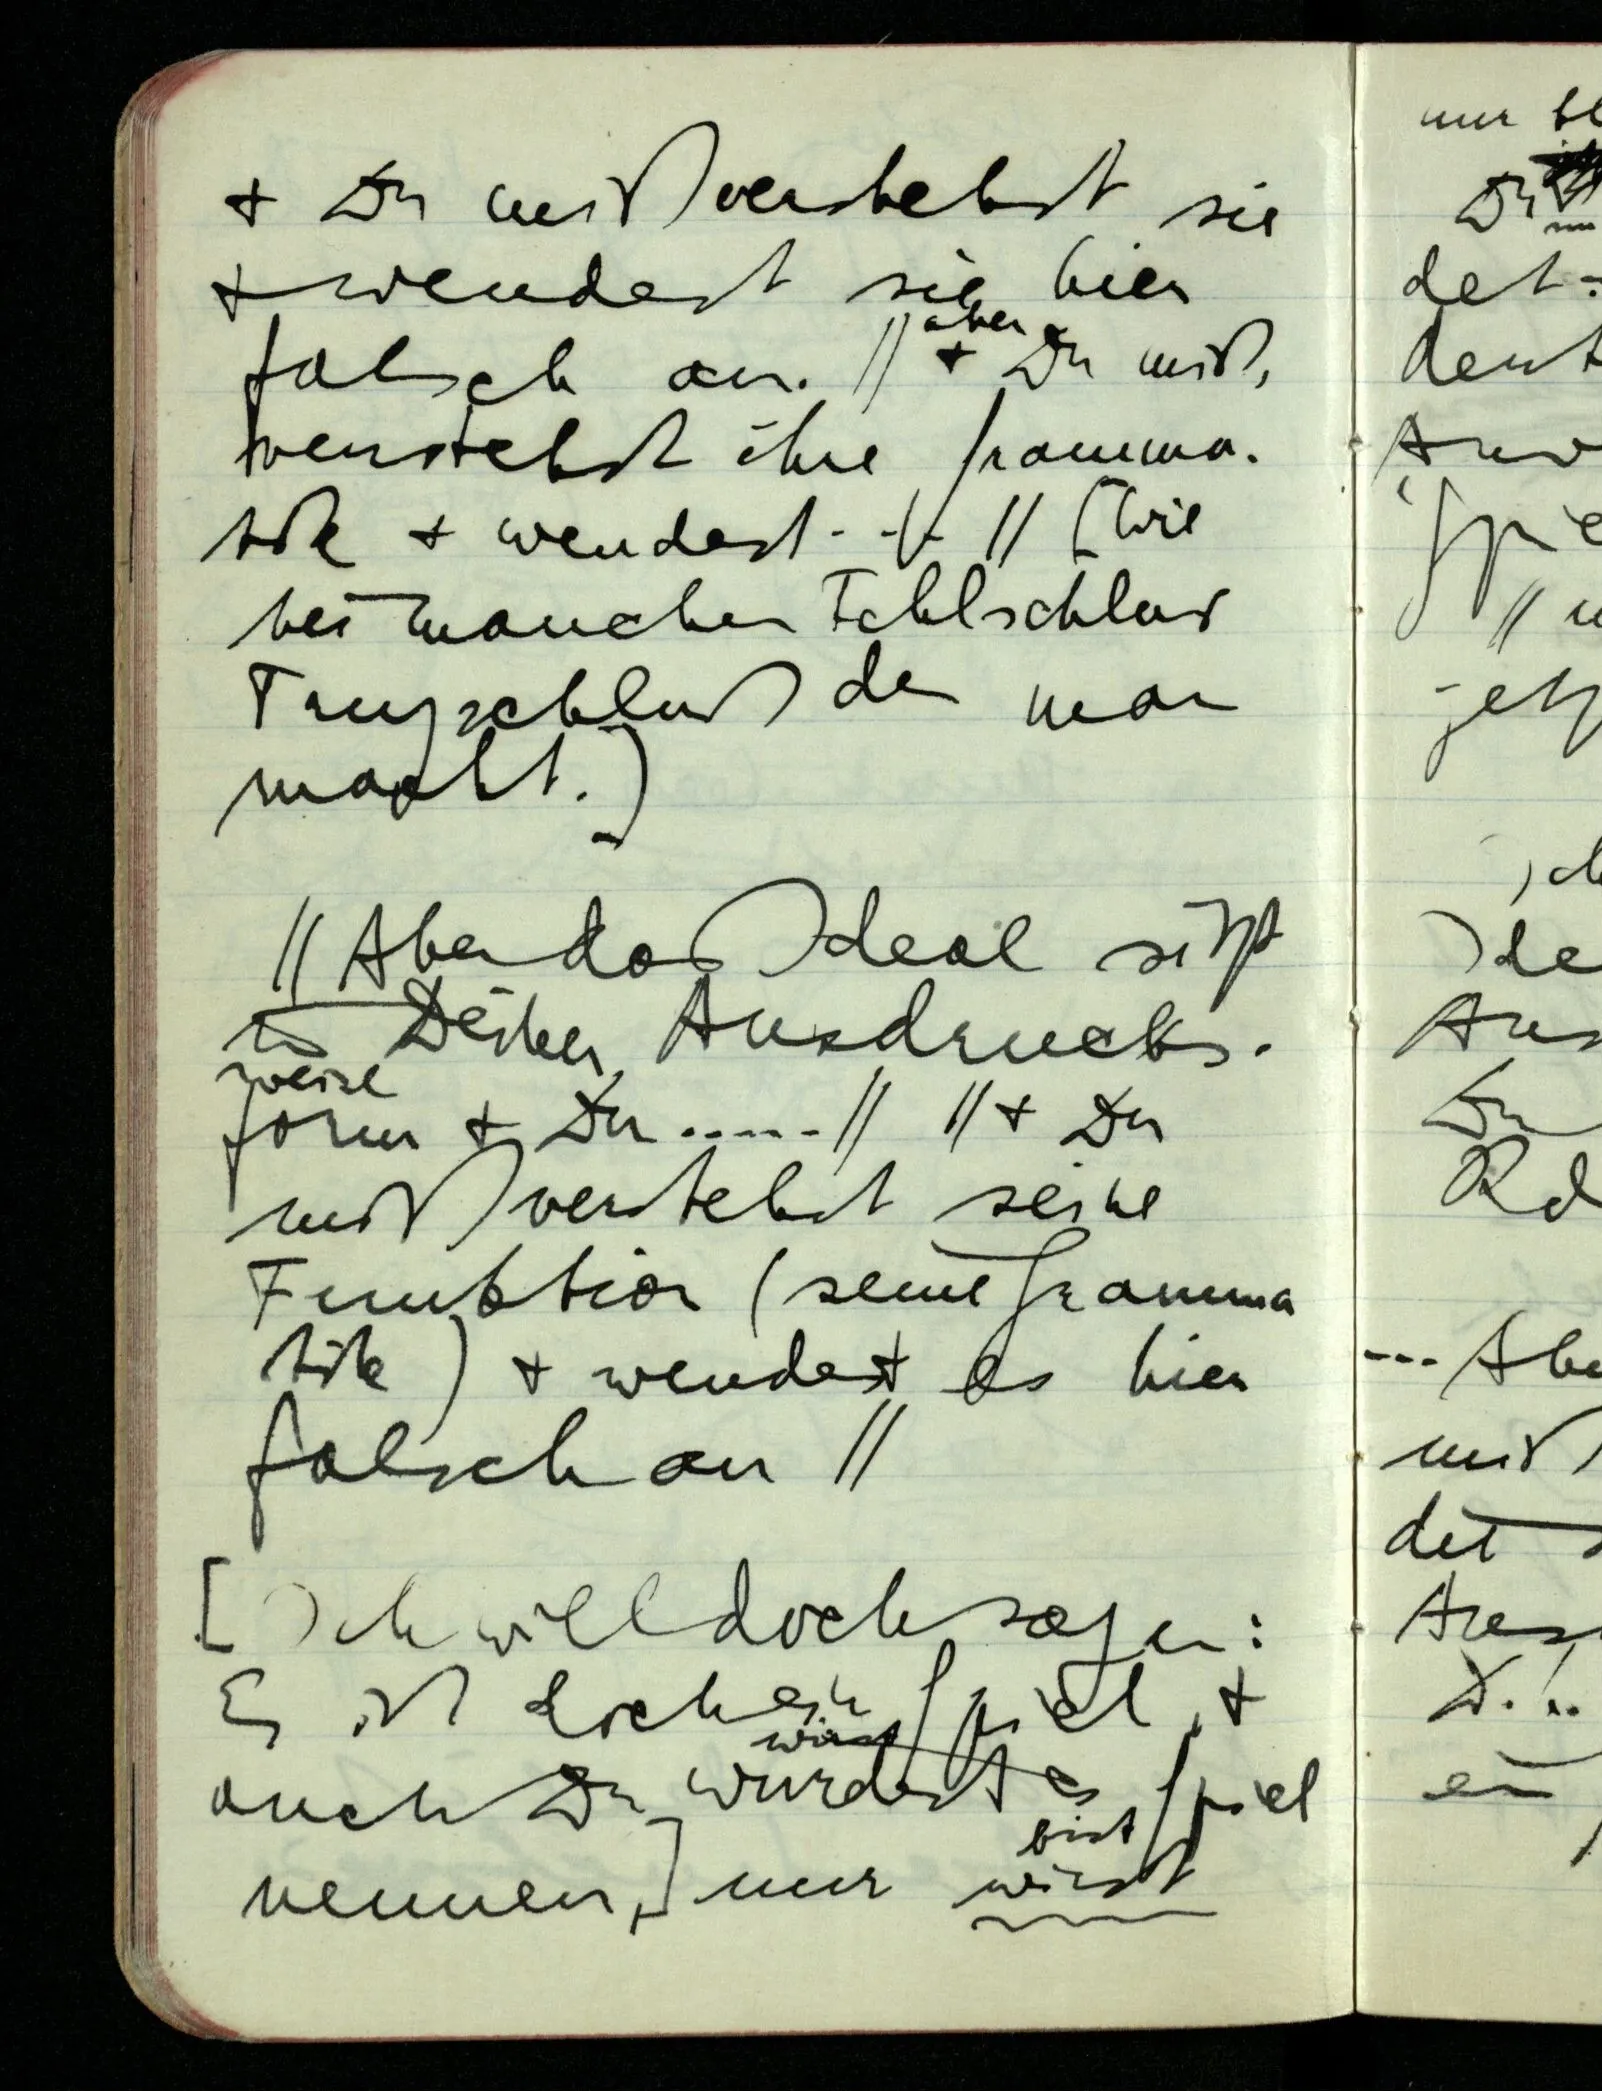 + Du mißverstehst sie
+ wendest sie hier
falsch an. // + aber Du miß,
verstehst ihre Gramma-
tik + wendest . . . // (Wie
bei mancher Fehlschluß
Trugschluß den man
macht.)
// Aber das Ideal sitzt
in Deiner Ausdrucks-
weise
form + Du ..... // // + Du
mißverstehst seine
Funktion (seine Gramma
tik) + wendest es hier
falsch an //
[Ich will doch sagen:
Es ist doch ein Spiel, +
wirst
auch Du würdest es Spiel
bist
nennen,] nur wirst
nur
Du
det